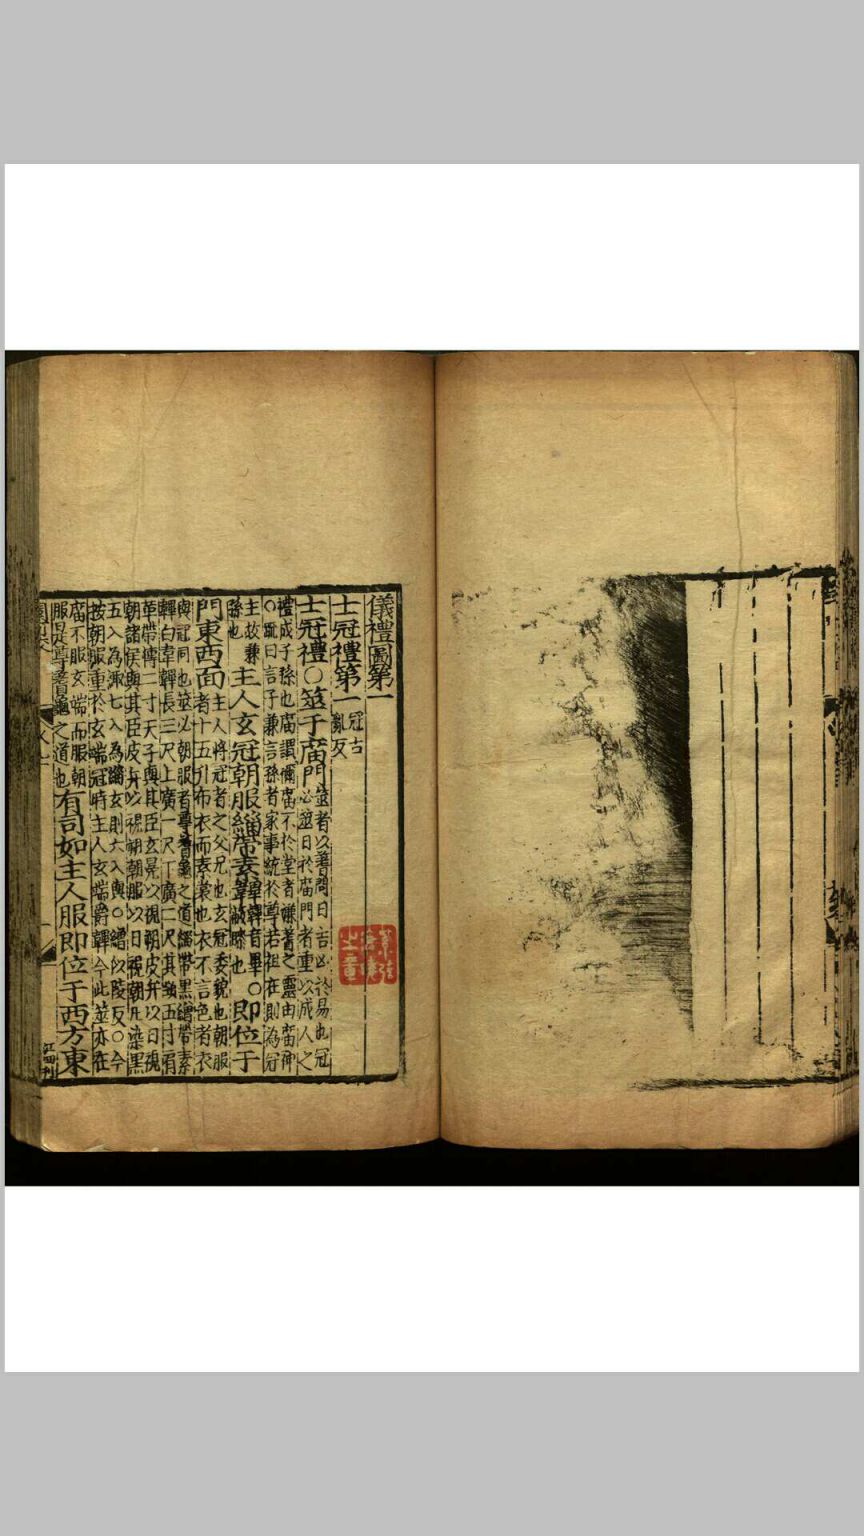 儀禮圖第一
士冠禮第一 冠古
亂反
士冠禮○筮于庿門 筮者以蓍問日吉凶於易也冠
必筮日於庿門者重以成人之
禮成子孫也庿謂禰庿不於堂者嫌蓍之靈由庿神
○疏曰言子兼言孫者家事統於尊若祖在則為冠
主故兼
孫也 主人玄冠朝服緇帶素韠 韠音畢○
膝也 即位于
門東西面 主人將冠者之父兄也玄冠委貌也朝服
者十五升布衣而素裳也衣不言色者衣
與冠同也筮必朝服者尊蓍龜之道緇帶黑繒帶素
韠白韋韠長三尺上廣一尺下廣二尺其頸五寸肩
革帶博二寸天子與其臣玄冕以視朔皮弁以日視
朝諸侯與其臣皮弁以視朔朝服以日視朝凡染黑
五入為緅七入為緇玄則六入與○繒似陵反○今
按朝服重於玄端冠時主人玄端爵韠今此筮亦在
庿不服玄端而服朝
服是尊蓍龜之道也 有司如主人服即位于西方東